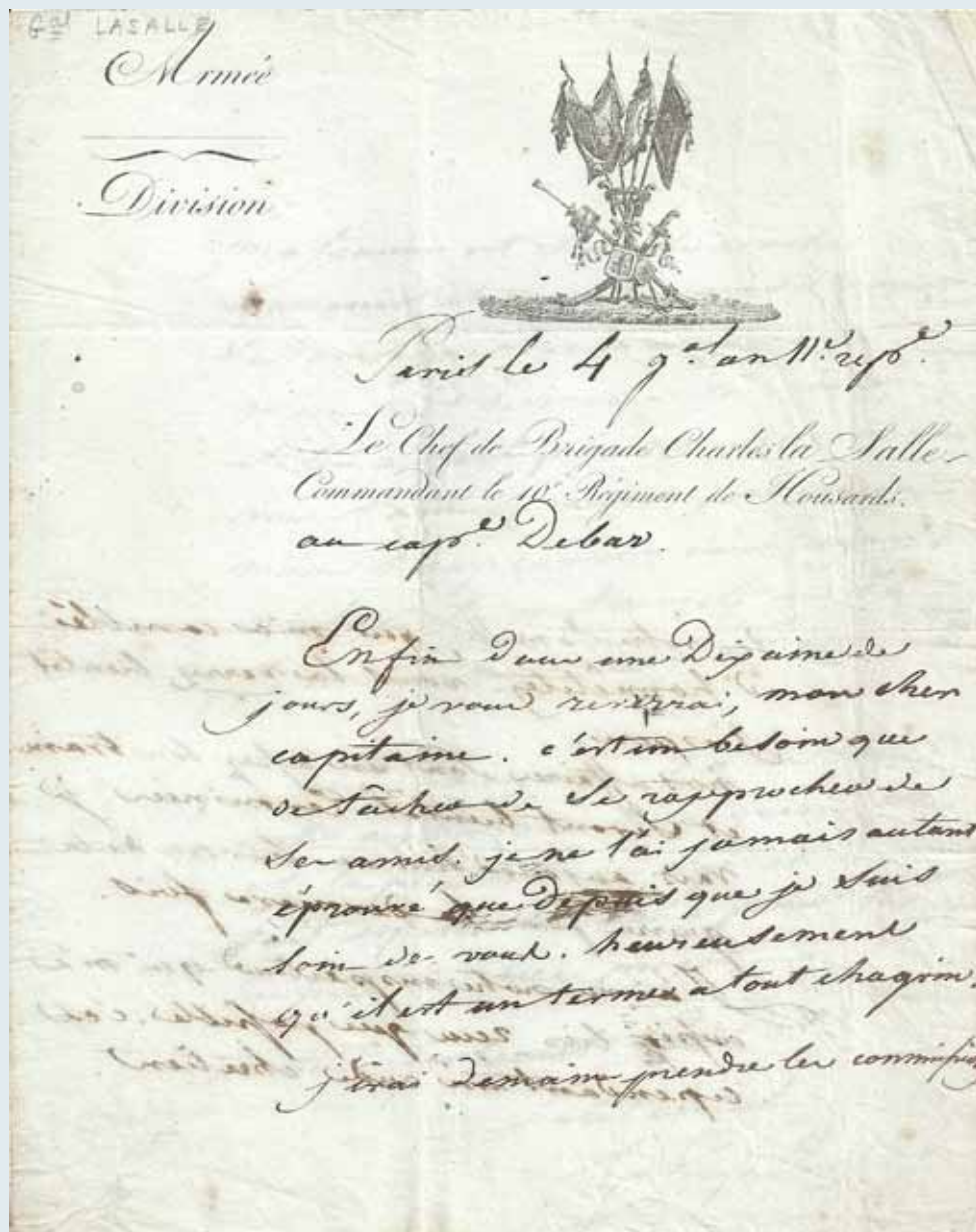 Gal LASALLE
Armée
Division
Paris le 4 gal an 11e repe.
Le Chef de Brigade Charles la Salle
Commandant le 10e Régiment de Housards.
au cape. Debar.
Enfin dans une Dixaine de
jours, je vous reverrai, mon cher
capitaine. c'est un besoin que
de tâcher de se rapprocher de
ses amis. je ne l'ai jamais autant
éprouvé que Depuis que je suis
loin de vous. heureusement
qu'il est un terme a tout chagrin
j'irai Demain prendre les